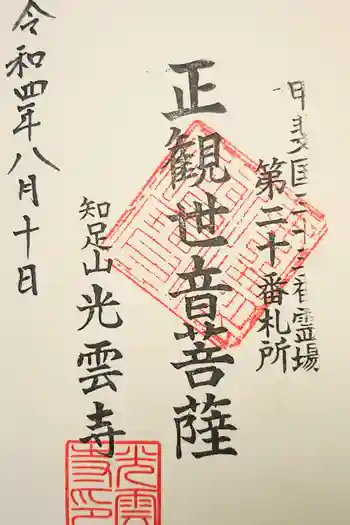 甲斐国三十三番霊場
第二十番札所
正観世音菩薩
知足山 光雲寺
令和四年八月十日
光雲
寺印